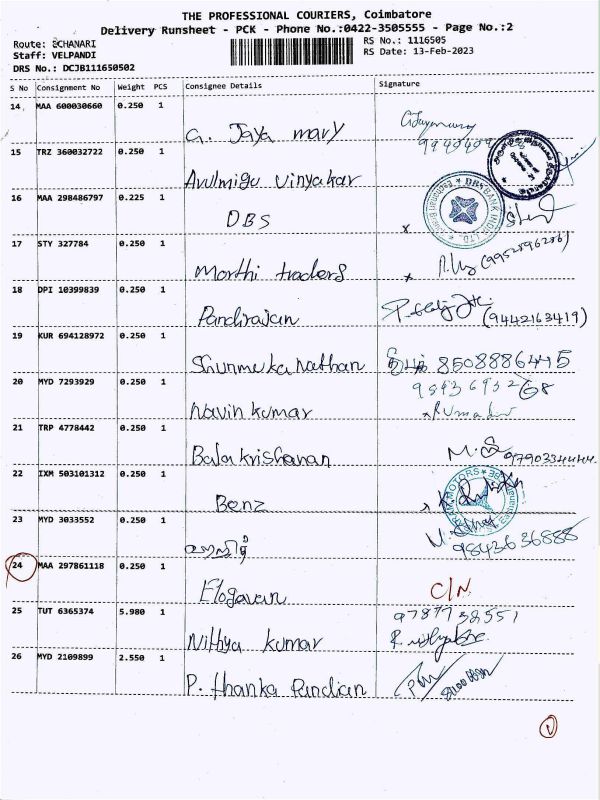 THE PROFESSIONAL COURIERS, Coimbatore
Delivery Runsheet - PCK - Phone No.:0422-3505555 - Page No.:2
Route: ECHANARI
Staff: VELPANDI
DRS No.: DCJB111650502
RS No.: 1116505
RS Date: 13-Feb-2023
S No Consignment No Weight PCS Consignee Details Signature
14 MAA 600030660 0.250 1
G. Jaya mary
15 TRZ 360032722 0.250 1
Avulmigu vinyakar
16 MAA 298486797 0.225 1
DBS
DBS BANK INDIA LTD.
17 STY 327784 0.250 1
Morthi traders
(9952896286)
18 DPI 10399839 0.250 1
Pandirajan
(9442163419)
19 KUR 694128972 0.250 1
Shunmuka nathan 8508886445
20 MYD 7293929 0.250 1
navin kumar
21 TRP 4778442 0.250 1
Bala krishanan
22 IXM 503101312 0.250 1
Benz
MOTORS
23 MYD 3033552 0.250 1
9843636888
24 MAA 297861118 0.250 1
Elogavan C/N
25 TUT 6365374 5.980 1
9787738551
Nithya kumar
26 MYD 2109899 2.550 1
P. thanka Pandian